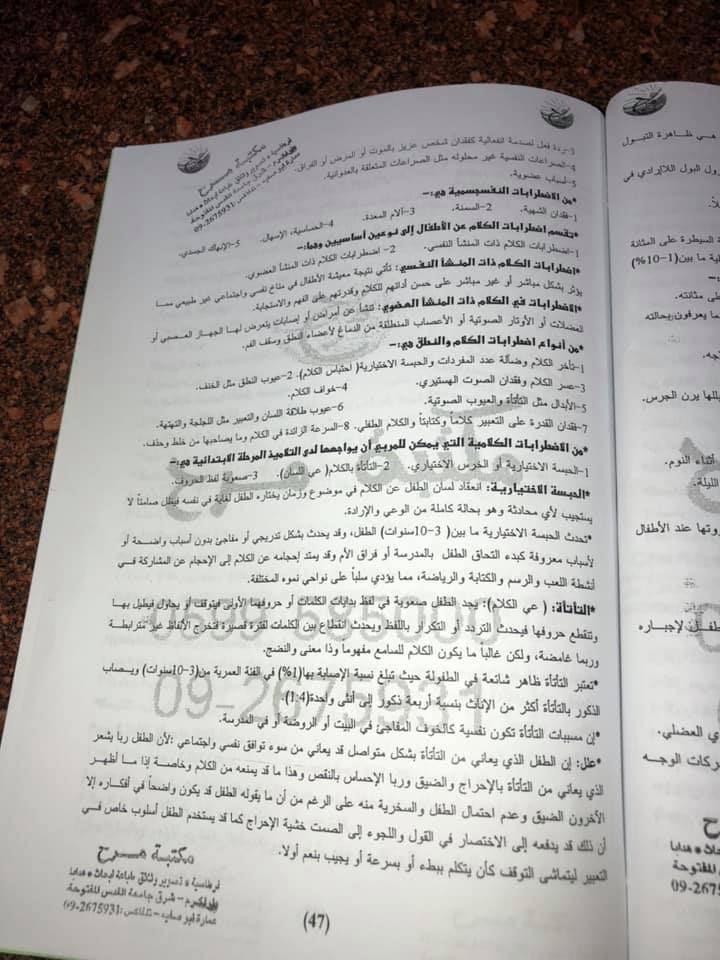 مكتبة مرح
قرطاسية • تصوير وثائق طباعة ابحاث • هدايا
09-2675931
3-ردة فعل لصدمة انفعالية كفقدان شخص عزيز بالموت أو المرض أو الفراق.
4-الصراعات النفسية غير محلوله مثل الصراعات المتعلقة بالعدوانية.
5-أسباب عضوية.
*من الاضطرابات النفسجسمية هي:-
1-فقدان الشهية. 2-السمنة. 3-آلام المعدة. 4-الحساسية، الإسهال. 5-الإنهاك الجسدي.
*تقسم اضطرابات الكلام عن الأطفال إلى نوعين أساسيين وهما:-
1-اضطرابات الكلام ذات المنشأ النفسي. 2- اضطرابات الكلام ذات المنشأ العضوي.
*اضطرابات الكلام ذات المنشأ النفسي: تأتي نتيجة معيشة الأطفال في مناخ نفسي واجتماعي غير طبيعي مما
يؤثر بشكل مباشر أو غير مباشر على حسن أدائهم للكلام وقدرتهم على الفهم والاستجابة.
*الاضطرابات في الكلام ذات المنشأ العضوي: تنشأ عن أمراض أو إصابات يتعرض لها الجهاز العصبي أو
العضلات أو الأوتار الصوتية أو الأعصاب المنطلقة من الدماغ لأعضاء النطق وسقف الفم.
*من أنواع اضطرابات الكلام والنطق هي:-
1-تأخر الكلام وضآلة عدد المفردات والحبسة الاختيارية( احتباس الكلام). 2-عيوب النطق مثل الخنف.
3-عسر الكلام وفقدان الصوت الهستيري. 4-خواف الكلام.
5-الأبدال مثل التأتأة والعيوب الصوتية. 6-عيوب طلاقة اللسان والتعبير مثل اللجلجة والتهتهة.
7-فقدان القدرة على التعبير كلاماً وكتابتاً والكلام الطفلي. 8-السرعة الزائدة في الكلام وما يصاحبها من خلط وحذف.
*من الاضطرابات الكلامية التي يمكن للمربي أن يواجهها لدى التلاميذ المرحلة الابتدائية هي:-
1-الحبسة الاختيارية أو الخرس الاختياري. 2-التأتأة بالكلام( عي اللسان). 3-صعوبة لفظ الحروف.
*الحبسة الاختيارية: انعقاد لسان الطفل عن الكلام في موضوع وزمان يختاره الطفل لغاية في نفسه فيظل صامتاً لا
يستجيب لأي محادثة وهو بحالة كاملة من الوعي والإرادة.
*تحدث الحبسة الاختيارية ما بين( 3-10سنوات) الطفل، وقد يحدث بشكل تدريجي أو مفاجئ بدون أسباب واضحة أو
لأسباب معروفة كبدء التحاق الطفل بالمدرسة أو فراق الأم وقد يمتد إحجامه عن الكلام إلى الإحجام عن المشاركة في
أنشطة اللعب والرسم والكتابة والرياضة، مما يؤدي سلباً على نواحي نموه المختلفة.
*التأتأة: ( عي الكلام): يجد الطفل صعوبة في لفظ بدايات الكلمات أو حروفها الأولى فيتوقف أو يحاول فيطيل بها
وتنقطع حروفها فيحدث التردد أو التكرار باللفظ ويحدث انقطاع بين الكلمات لفترة قصيرة فتخرج الألفاظ غير مترابطة
وربما غامضة، ولكن غالباً ما يكون الكلام للسامع مفهوماً وذا معنى والنضج.
*تعتبر التأتأة ظاهر شائعة في الطفولة حيث تبلغ نسبة الإصابة بها(1%) في الفئة العمرية من(3-10سنوات) ويصاب
الذكور بالتأتأة أكثر من الإناث بنسبة أربعة ذكور إلى أنثى واحدة(1:4).
*إن مسببات التأتأة تكون نفسية كالخوف المفاجئ في البيت أو الروضة أو في المدرسة.
*علل: إن الطفل الذي يعاني من التأتأة بشكل متواصل قد يعاني من سوء توافق نفسي واجتماعي :لأن الطفل ربا يشعر
الذي يعاني من التأتأة بالإحراج والضيق وربا الإحساس بالنقص وهذا ما قد يمنعه من الكلام وخاصة إذا ما أظهر
الآخرون الضيق وعدم احتمال الطفل والسخرية منه على الرغم من أن ما يقوله الطفل قد يكون واضحاً في أفكاره إلا
أن ذلك قد يدفعه إلى الاختصار في القول واللجوء إلى الصمت خشية الإحراج كما قد يستخدم الطفل أسلوب خاص في
التعبير ليتماشى التوقف كأن يتكلم ببطء أو بسرعة أو يجيب بنعم أولا.
مكتبة مرح
قرطاسية • تصوير وثائق طباعة ابحاث • هدايا
شرق جامعة القدس المفتوحة
09-2675931
(47)
مكتبة مرح
0599-685000
09-2675931
ـي ظاهرة التبول
زول البول اللاإرادي في
ة السيطرة على المثانة
لية ما بين(1-10%)
لى مثانته.
ما يعرفون بحالته
جه.
للها يرن الجرس.
أثناء النوم.
الليلة.
وتها عند الأطفال
طفل لإجباره
ي العضلي.
ركات الوجه
ابحاث • هدايا
المفتوحة
09-26